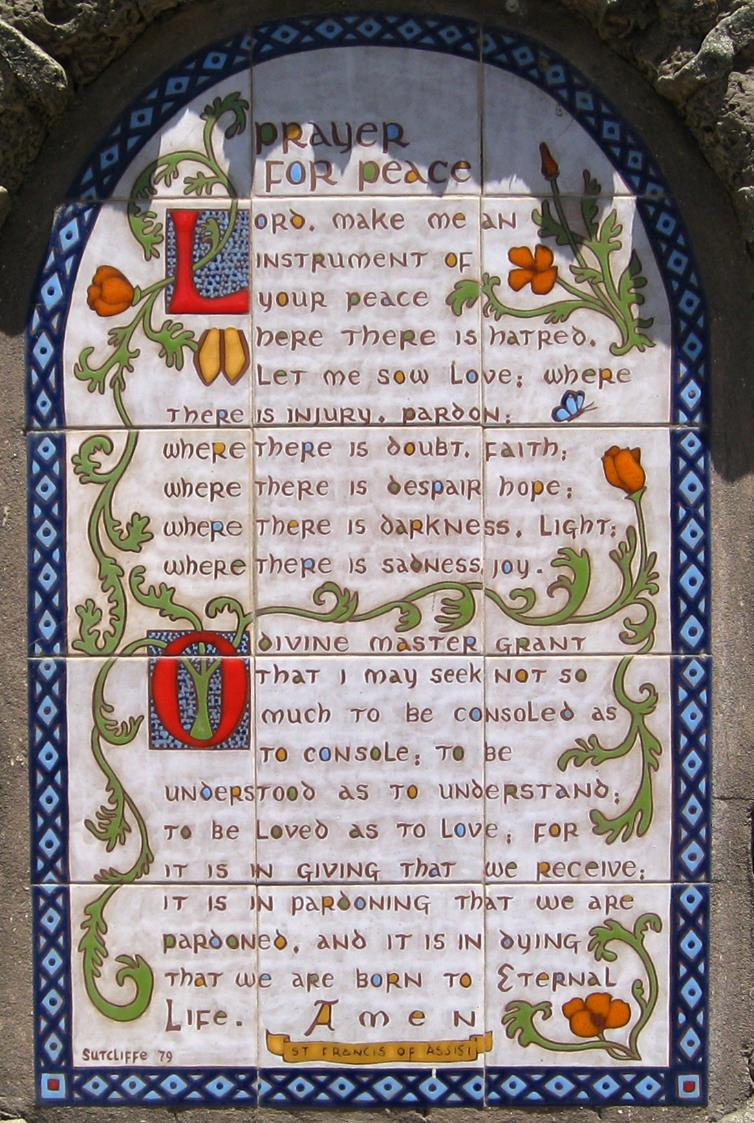 PRAYER
FOR PEACE
LORD, MAKE ME AN
INSTRUMENT OF
YOUR PEACE
WHERE THERE IS HATRED,
LET ME SOW LOVE; WHERE
THERE IS INJURY, PARDON;
WHERE THERE IS DOUBT, FAITH;
WHERE THERE IS DESPAIR HOPE;
WHERE THERE IS DARKNESS, LIGHT;
WHERE THERE IS SADNESS, JOY.
O DIVINE MASTER GRANT
THAT I MAY SEEK NOT SO
MUCH TO BE CONSOLED AS
TO CONSOLE; TO BE
UNDERSTOOD AS TO UNDERSTAND;
TO BE LOVED AS TO LOVE; FOR
IT IS IN GIVING THAT WE RECEIVE;
IT IS IN PARDONING THAT WE ARE
PARDONED, AND IT IS IN DYING
THAT WE ARE BORN TO ETERNAL
LIFE. AMEN
ST FRANCIS OF ASSISI
SUTCLIFFE '79